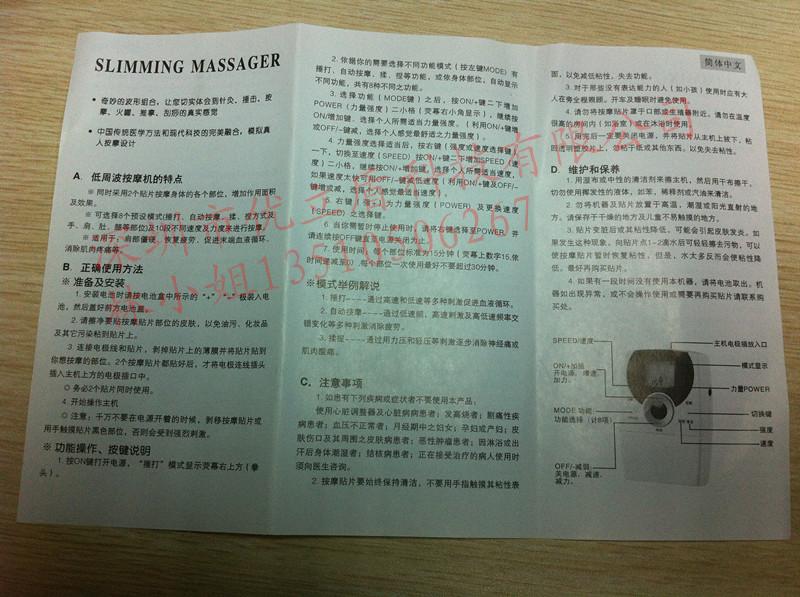 SLIMMING MASSAGER
● 奇妙的波形组合，让您切实体会到针灸、捶击、按
摩、火罐、推拿、刮痧的真实感觉
● 中国传统医学方法和现代科技的完美融合，模拟真
人按摩设计
A. 低周波按摩机的特点
※ 同时采用2个贴片按摩身体的各个部位，增加作用面积
及效果。
※ 可选择8个预设模式(捶打、自动按摩、揉、捏方式及
手、肩、肚、腿等部位)及10段不同速度及力度来进行按摩。
※ 适用于，肩部僵硬、恢复疲劳、促进末端血液循环、
消除肌肉疼痛等。
B. 正确使用方法
※ 准备及安装
1. 安装电池时请按电池盒中所示的 “+” “-” 极装入电
池，然后盖好前方电池盖。
2. 请擦净要贴按摩贴片部位的皮肤，以免油污、化妆品
及其它污染粘到贴片上。
3. 连接电极线和贴片，剥掉贴片上的薄膜并将贴片贴到
你想按摩的部位。2个按摩贴片都贴好后，才将电极连线插头
插入主机上方的电极插口中。
◎ 务必2个贴片同时使用。
4. 开始操作主机
◎ 注意：千万不要在电源开着的时候，剥移按摩贴片或
用手触摸贴片黑色部位，否则会受到强烈刺激。
※ 功能操作、按键说明
1. 按ON键打开电源，“捶打”模式显示荧幕右上方（拳
头）。
2. 依据你的需要选择不同功能模式（按左键MODE）有
捶打、自动按摩、揉、捏等功能，或你身体部位，自动显示
不同功能，共有8种不同之功能。
3. 选择功能（MODE键）之后，按ON/+键二下增加
POWER（力量强度）二小格（荧幕右小角显示），继续按
ON/增加键，选择个人所需适当力量强度。（利用ON/+键增
或OFF/-键减，选择个人感觉最舒适之力量强度）。
4. 力量强度选择适当后，按右键（强度或速度选择键）
一下，切换至速度（SPEED）按ON/+键二下增加SPEED（速
度）二小格，继续按ON/+增加键，选择个人所需适当速度，
如果速度太快可用OFF/-键减低速度（利用ON/+键及OFF/-
键增或减，选择个人感觉最适当速度）。
5. 右键（强度）为力量强度（POWER）及更换速度
（SPEED）之选择键。
6. 当你需暂停止使用时，请将右键选择至POWER，并
请连续按OFF键直至电源关闭为止。
7. 使用时间：每个部位标准为15分钟（荧幕上数字15.依
时间递减至0)，每个部位一次使用最好不要超过30分钟。
※模式举例解说
1. 捶打----通过高速和低速等多种刺激促进血液循环。
2. 自动按摩----通过低速前，高速刺激及高低速频率交
错变化等多种刺激消除疲劳。
3. 揉捏---通过用力压和轻压等刺激逐步消除神经痛或
肌肉酸痛。
C. 注意事项
1. 如患有下列疾病或症状者不要使用本产品；
使用心脏调整器及心脏病病患者；发高烧者；剧痛性疾
病病患者；血压不正常者；月经期中之妇女；孕妇或产妇；皮
肤伤口及其周围之皮肤病患者；恶性肿瘤患者；因淋浴或出
汗后身体潮湿者；结核病患者；正在接受治疗的病人使用时
须向医生咨询。
2. 按摩贴片要始终保持清洁，不要用手指触摸其粘性表
简体中文
面，以免减低粘性，失去功能。
3. 对于那些没有表达能力的人（如小孩）使用时应有大
人在旁全程顾顾。开车及睡眠时避免使用。
4. 请勿将按摩贴片置于口部或生殖器附近。请勿在温度
很高的房间内（如浴室）或在沐浴时使用。
5. 用完后一定要关闭电源，并将贴片从主机上拔下，粘
回透明塑胶片上，勿粘于纸或其他东西，以免失去粘性。
D. 维护和保养
1. 用湿布或中性的清洁剂擦主机，然后用干布擦干，
切勿使用挥发性的液体，如苯，稀释剂或汽油来清洁。
2. 勿将机器及贴片放置于高温，潮湿或阳光直射的地
方。请保存于干燥的地方及儿童不易触摸的地方。
3. 贴片变脏后或其粘性降低，可能会引起皮肤发炎。如
果发生这种现象。向贴片点1-2滴水后可轻轻擦去污物，可以
使按摩贴片暂时恢复粘性，但是，水太多反而会使粘性降
低。最好再购买贴片。
4. 如果有一段时间没有使用本机器，请将电池取出。机
器如出现异常，或不会操作使用或需要再购买贴片请联系购
买处。
SPEED/速度
ON/+加插
开电源，增速
加力。
MODE 功能
功能选择（计8项）
OFF/-减弱
关电源，减速，
减力。
主机电极插放入口
模式显示
力量POWER
切换键
强度
速度